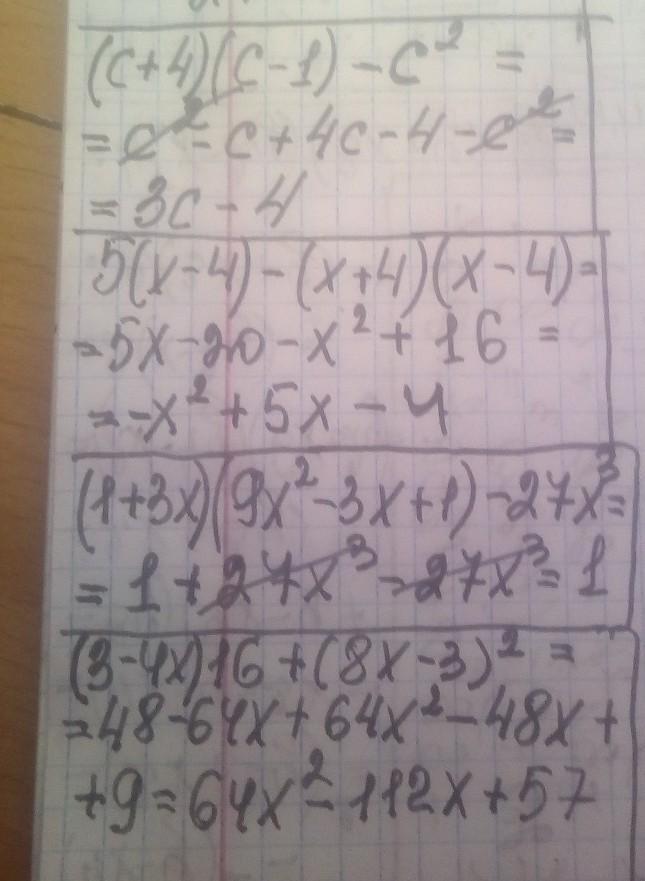 (c+4)(c-1)-c² =
= c²-c+4c-4-c² =
= 3c-4
5(x-4)-(x+4)(x-4)=
=5x-20-x²+16 =
=-x²+5x-4
(1+3x)(9x²-3x+1)-27x³=
= 1+27x³-27x³=1
(3-4x)16+(8x-3)² =
=48-64x+64x²-48x+
+9=64x²-112x+57